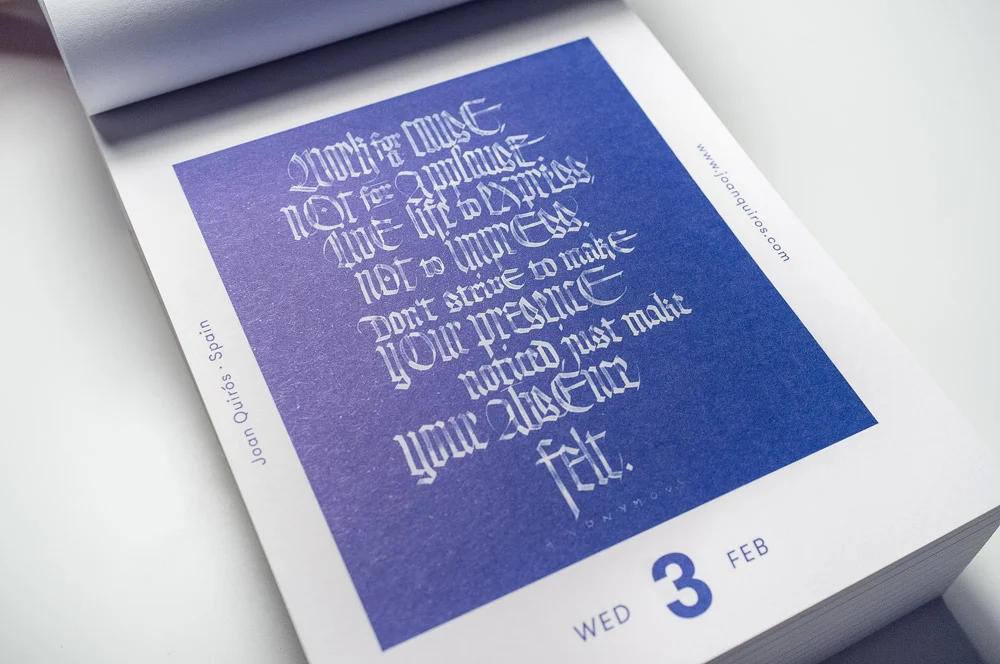 Work for a cause
not for Applause
live life to express,
not to impress.
Don't strive to make
your presence
noticed just make
your Absence
felt.
ANONYMOUS
www.joanquiros.com
Joan Quirós · Spain
WED 3 FEB